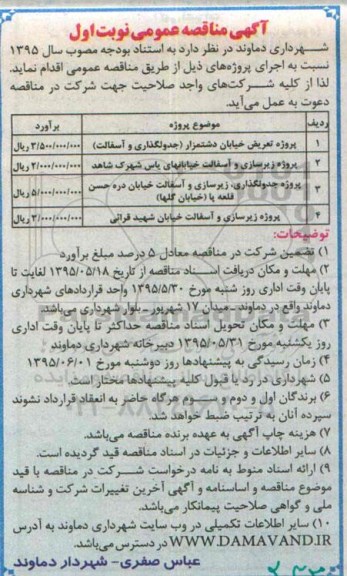 آگهی مناقصه عمومی نوبت اول
شهرداری دماوند در نظر دارد به استناد بودجه مصوب سال ۱۳۹۵
نسبت به اجرای پروژه‌های ذیل از طریق مناقصه عمومی اقدام نماید.
لذا از کلیه شرکت‌های واجد صلاحیت جهت شرکت در مناقصه
دعوت به عمل می‌آید.
ردیف موضوع پروژه برآورد
۱ پروژه تعریض خیابان دشتمزار (جدولگذاری و آسفالت) ۲/۵۰۰/۰۰۰/۰۰۰ ریال
۲ پروژه زیرسازی و آسفالت خیابانهای یاس شهرک شاهد ۲/۰۰۰/۰۰۰/۰۰۰ ریال
۳ پروژه جدولگذاری، زیرسازی و آسفالت خیابان دره حسن
قلعه پا (خیابان گلها) ۵/۰۰۰/۰۰۰/۰۰۰ ریال
۴ پروژه زیرسازی و آسفالت خیابان شهید قرائی ۳/۰۰۰/۰۰۰/۰۰۰ ریال
توضیحات:
۱) تضمین شرکت در مناقصه معادل ۵ درصد مبلغ برآورد
۲) مهلت و مکان دریافت اسناد مناقصه از تاریخ ۱۳۹۵/۰۵/۱۸ لغایت تا
پایان وقت اداری روز شنبه مورخ ۱۳۹۵/۵/۳۰ واحد قراردادهای شهرداری
دماوند واقع در دماوند- میدان ۱۷ شهریور -بلوار شهرداری می‌باشد.
۳) مهلت و مکان تحویل اسناد مناقصه حداکثر تا پایان وقت اداری
روز یکشنبه مورخ ۱۳۹۵/۰۵/۳۱ دبیرخانه شهرداری دماوند
۴) زمان رسیدگی به پیشنهادها روز دوشنبه مورخ ۱۳۹۵/۰۶/۰۱
۵) شهرداری در رد یا قبول کلیه پیشنهادها مختار است.
۶) برندگان اول و دوم و سوم هرگاه حاضر به انعقاد قرارداد نشوند
سپرده آنان به ترتیب ضبط خواهد شد.
۷) هزینه چاپ آگهی به عهده برنده مناقصه می‌باشد.
۸) سایر اطلاعات و جزئیات در اسناد مناقصه قید گردیده است.
۹) ارائه اسناد منوط به نامه درخواست شرکت در مناقصه با قید
موضوع مناقصه و اساسنامه و آگهی آخرین تغییرات شرکت و شناسه
ملی و گواهی صلاحیت پیمانکار می‌باشد.
۱۰) سایر اطلاعات تکمیلی در وب سایت شهرداری دماوند به آدرس
WWW.DAMAVAND.IR در دسترس می‌باشد.
عباس صفری- شهردار دماوند